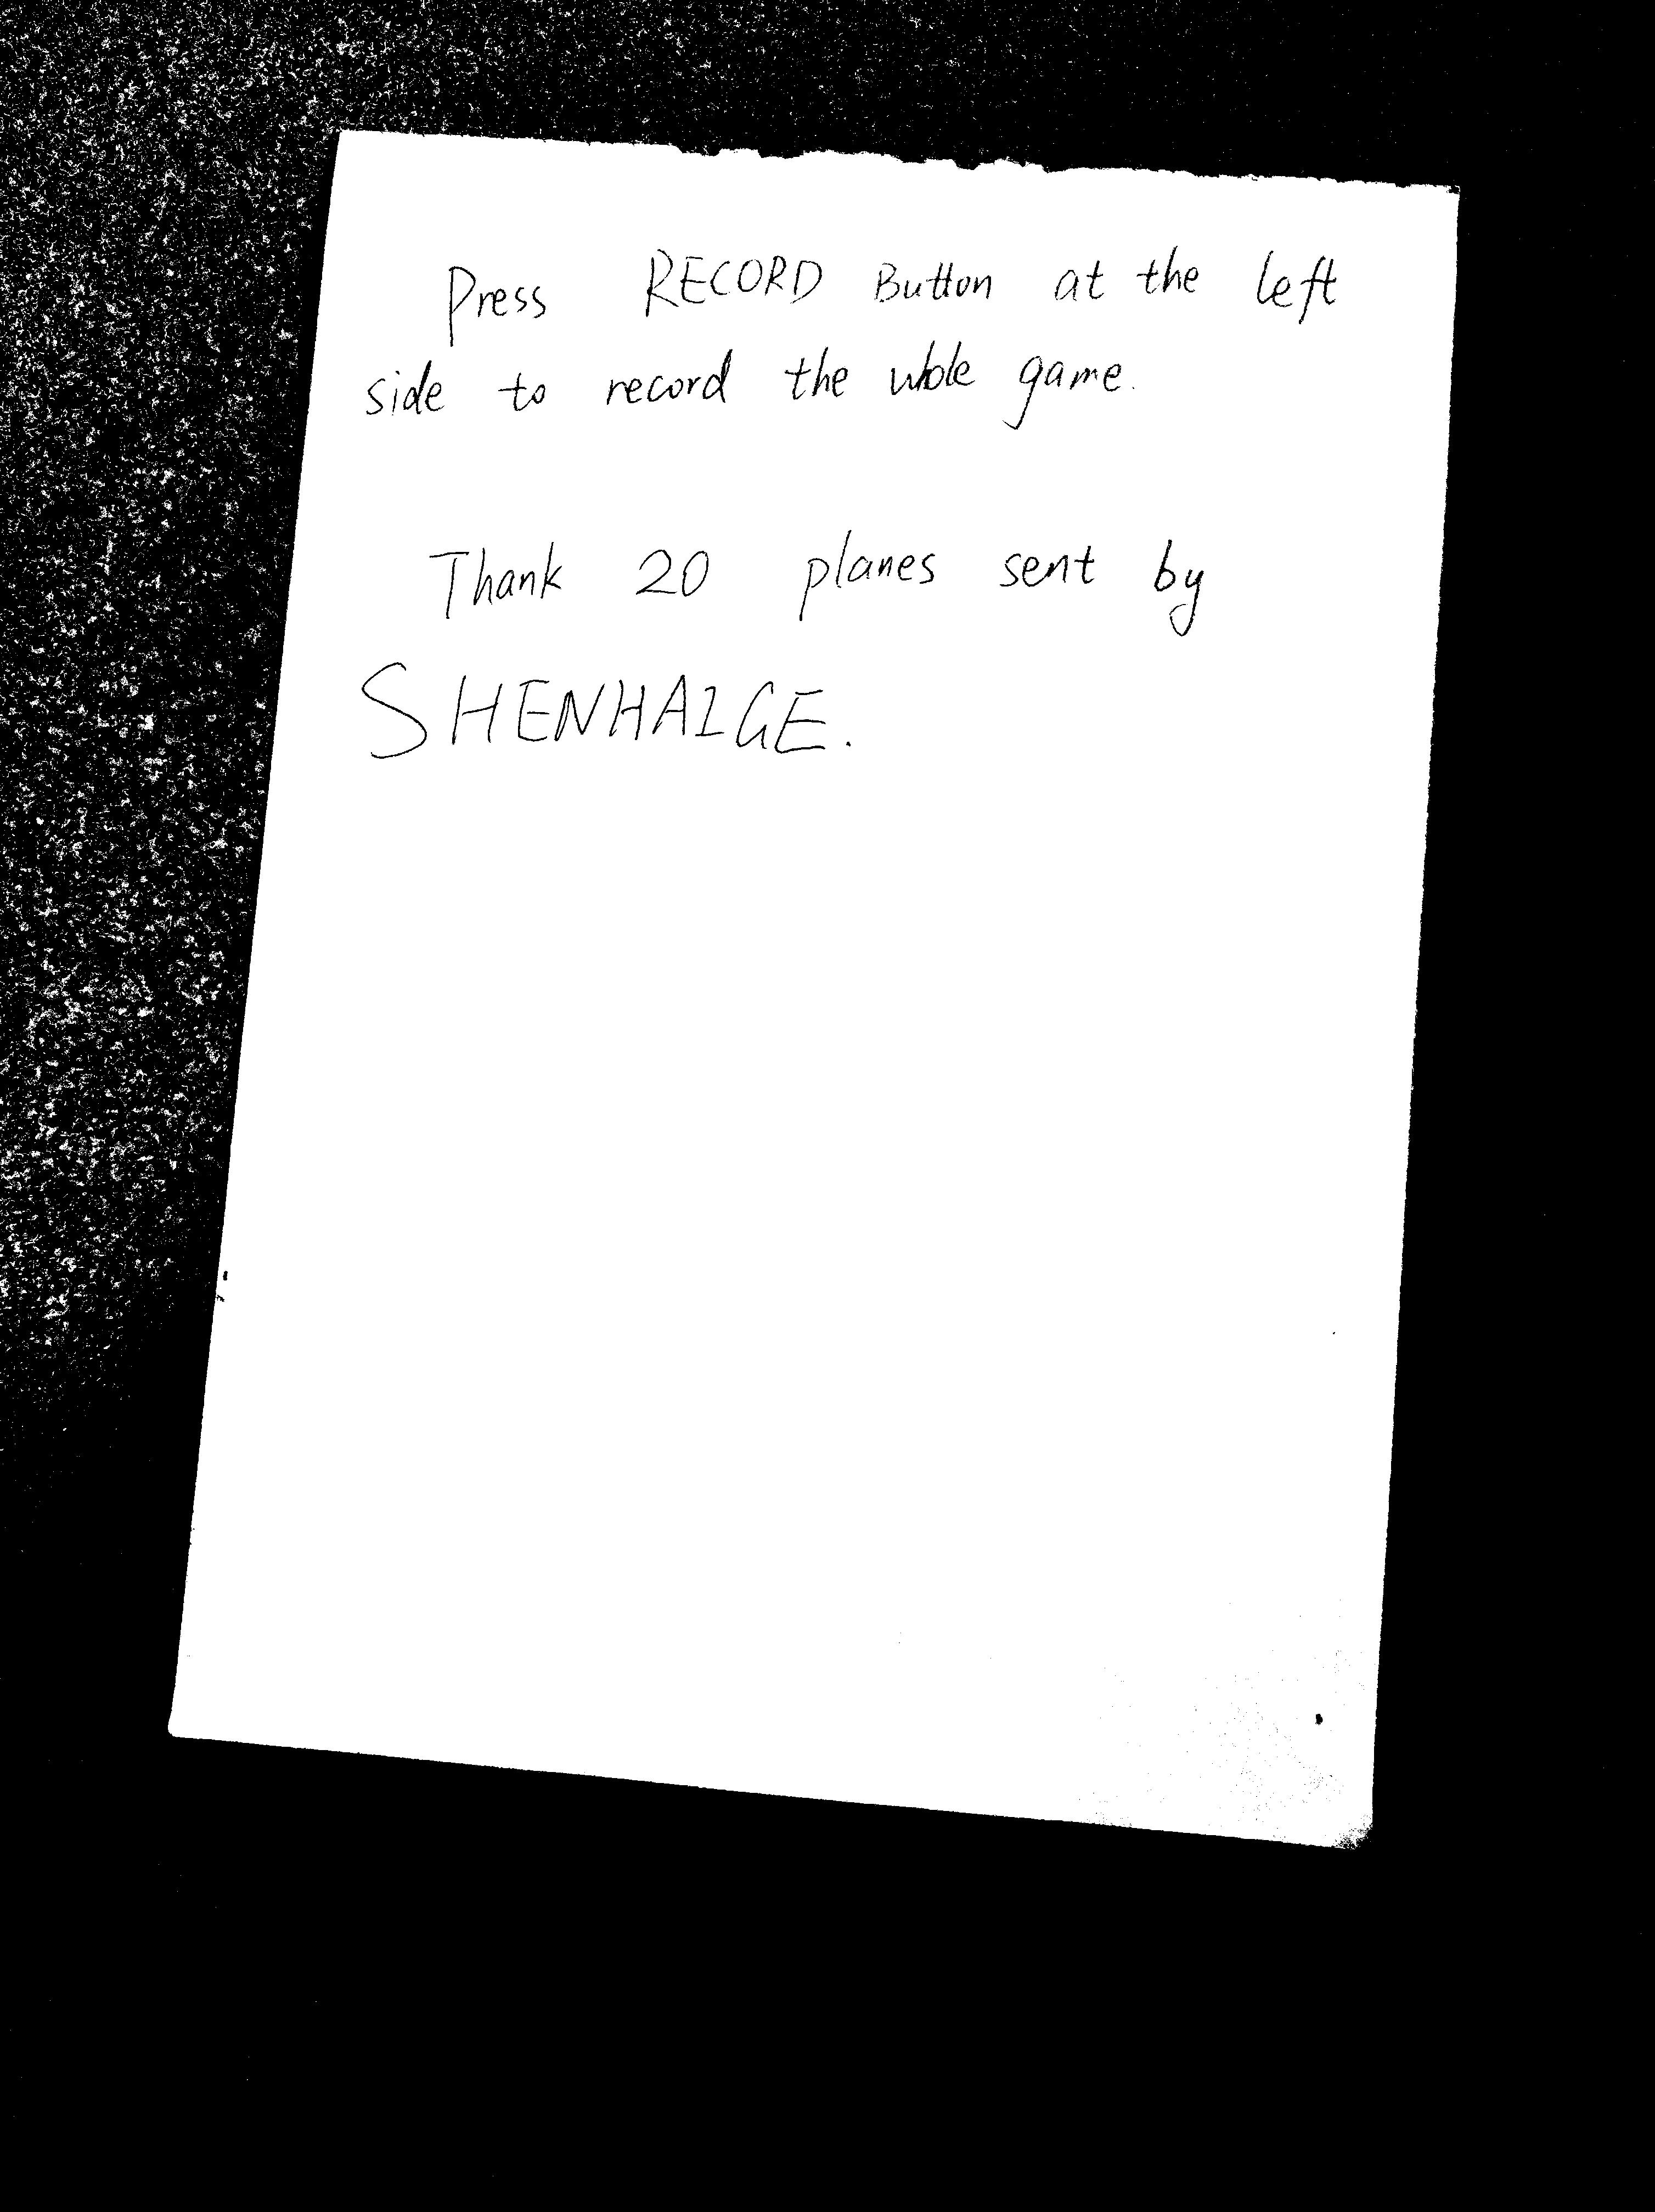 Press RECORD Button at the left
side to record the whole game.
Thank 20 planes sent by
SHENHAIGE.